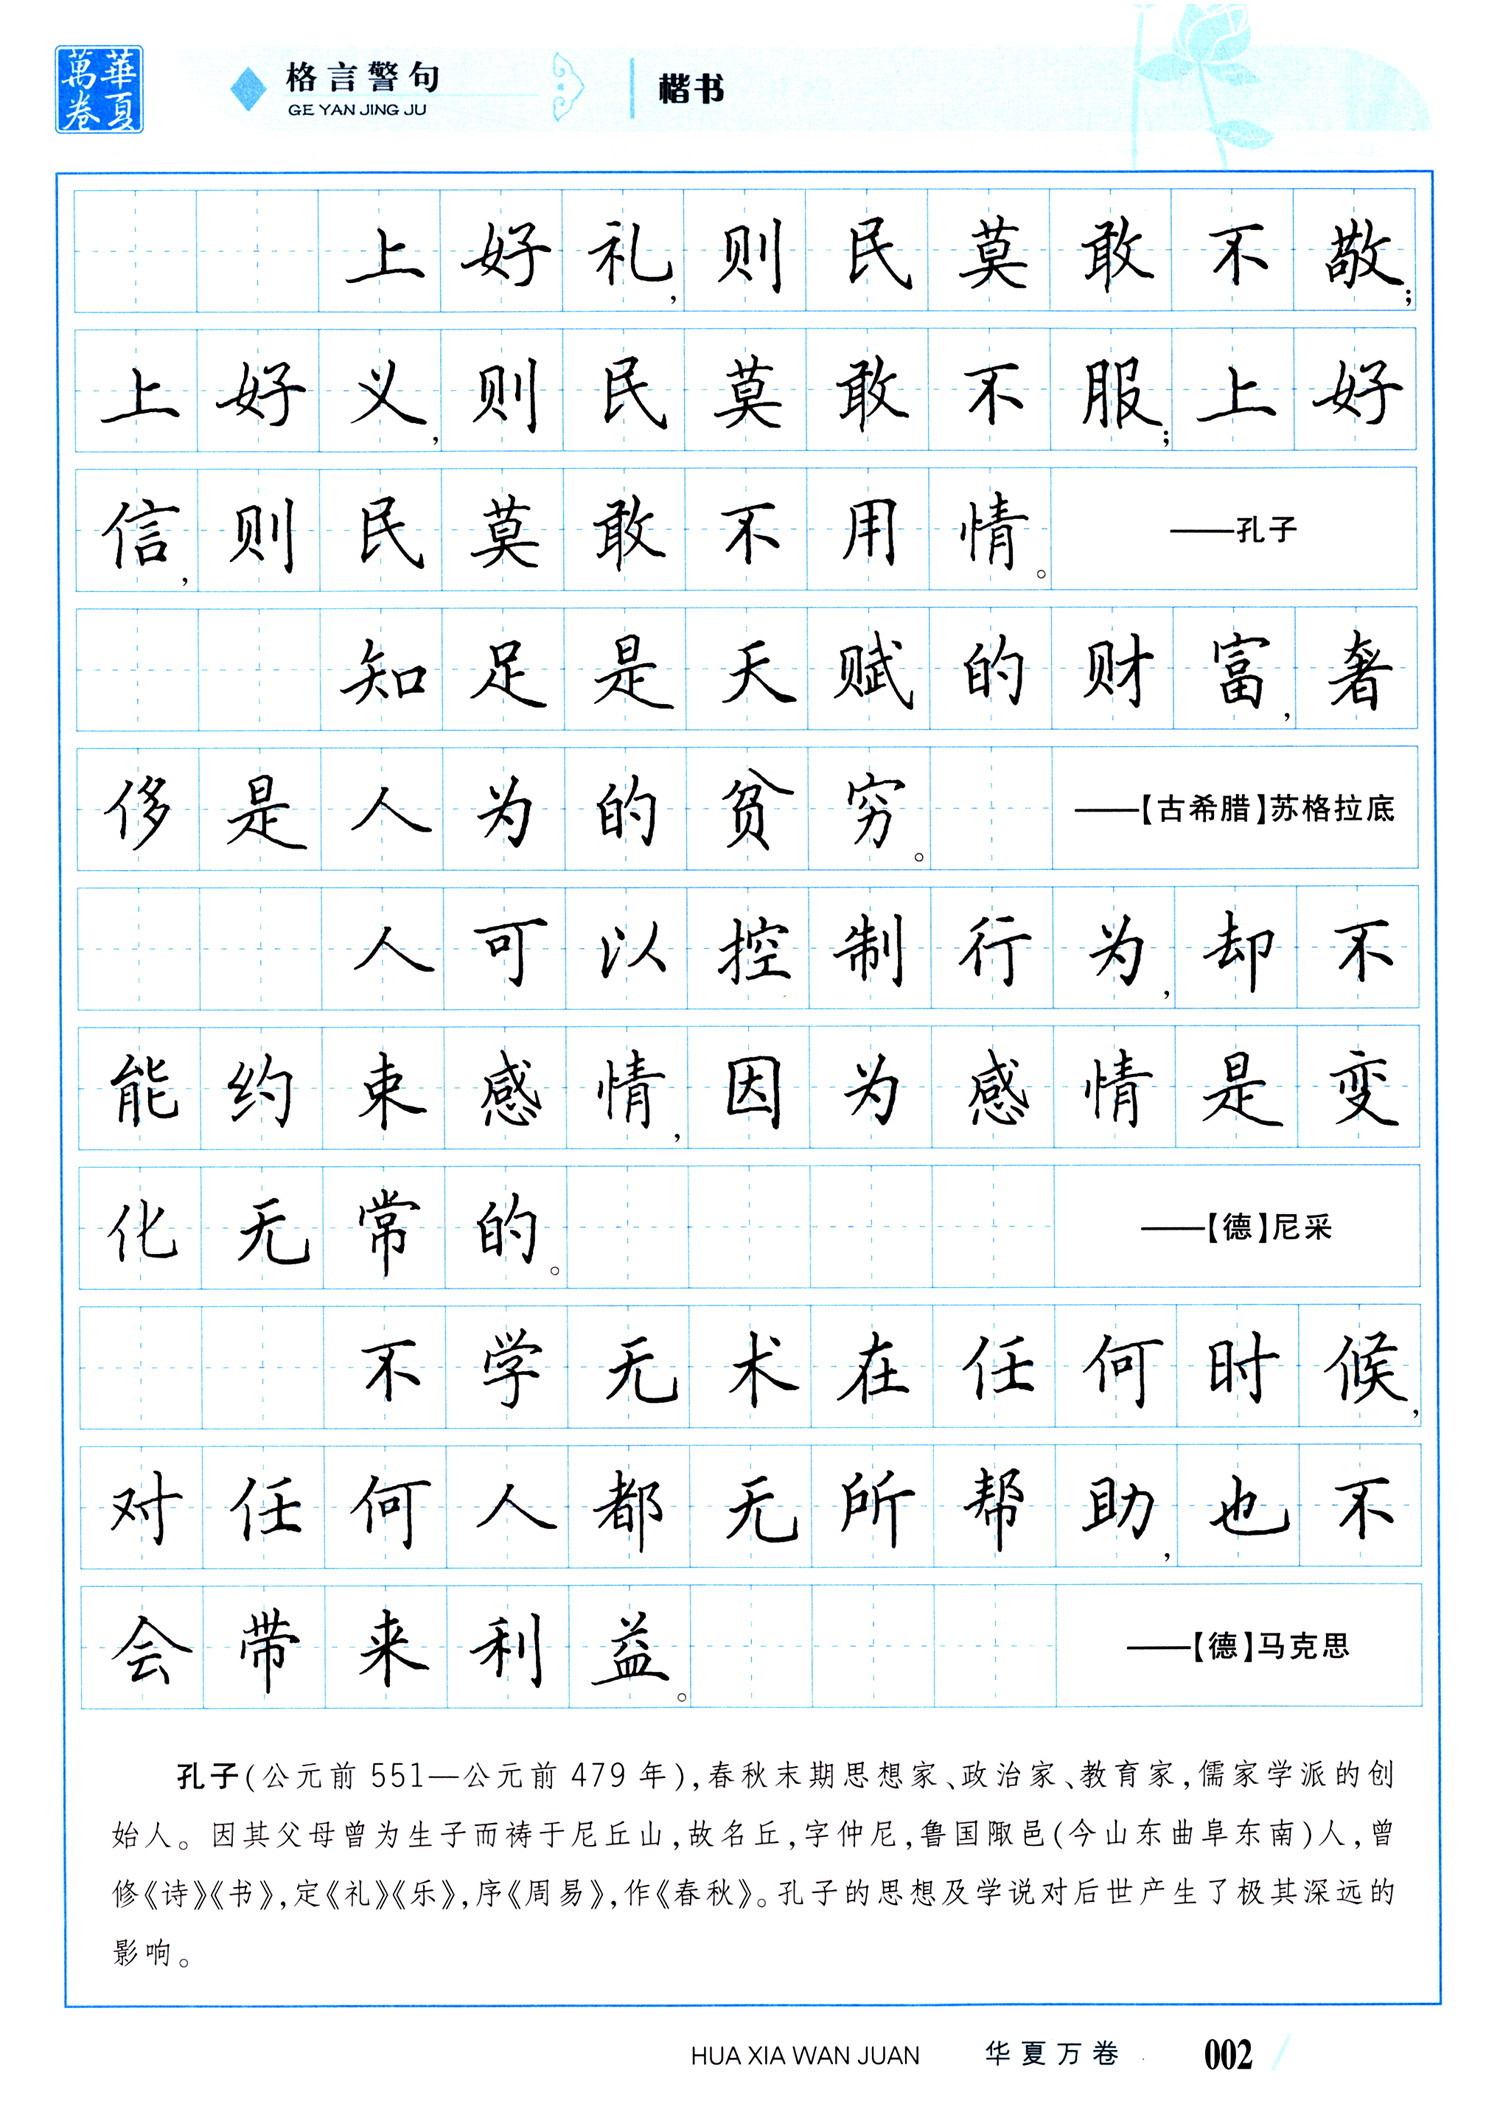 華夏
萬卷
格言警句
GE YAN JING JU
楷书
上好礼,则民莫敢不敬;
上好义,则民莫敢不服;上好
信,则民莫敢不用情。 ——孔子
知足是天赋的财富,奢
侈是人为的贫穷。 ——【古希腊】苏格拉底
人可以控制行为,却不
能约束感情,因为感情是变
化无常的。 ——【德】尼采
不学无术在任何时候,
对任何人都无所帮助,也不
会带来利益。 ——【德】马克思
孔子(公元前 551—公元前 479 年),春秋末期思想家、政治家、教育家,儒家学派的创
始人。因其父母曾为生子而祷于尼丘山,故名丘,字仲尼,鲁国陬邑(今山东曲阜东南)人,曾
修《诗》《书》,定《礼》《乐》,序《周易》,作《春秋》。孔子的思想及学说对后世产生了极其深远的
影响。
HUA XIA WAN JUAN 华夏万卷 002